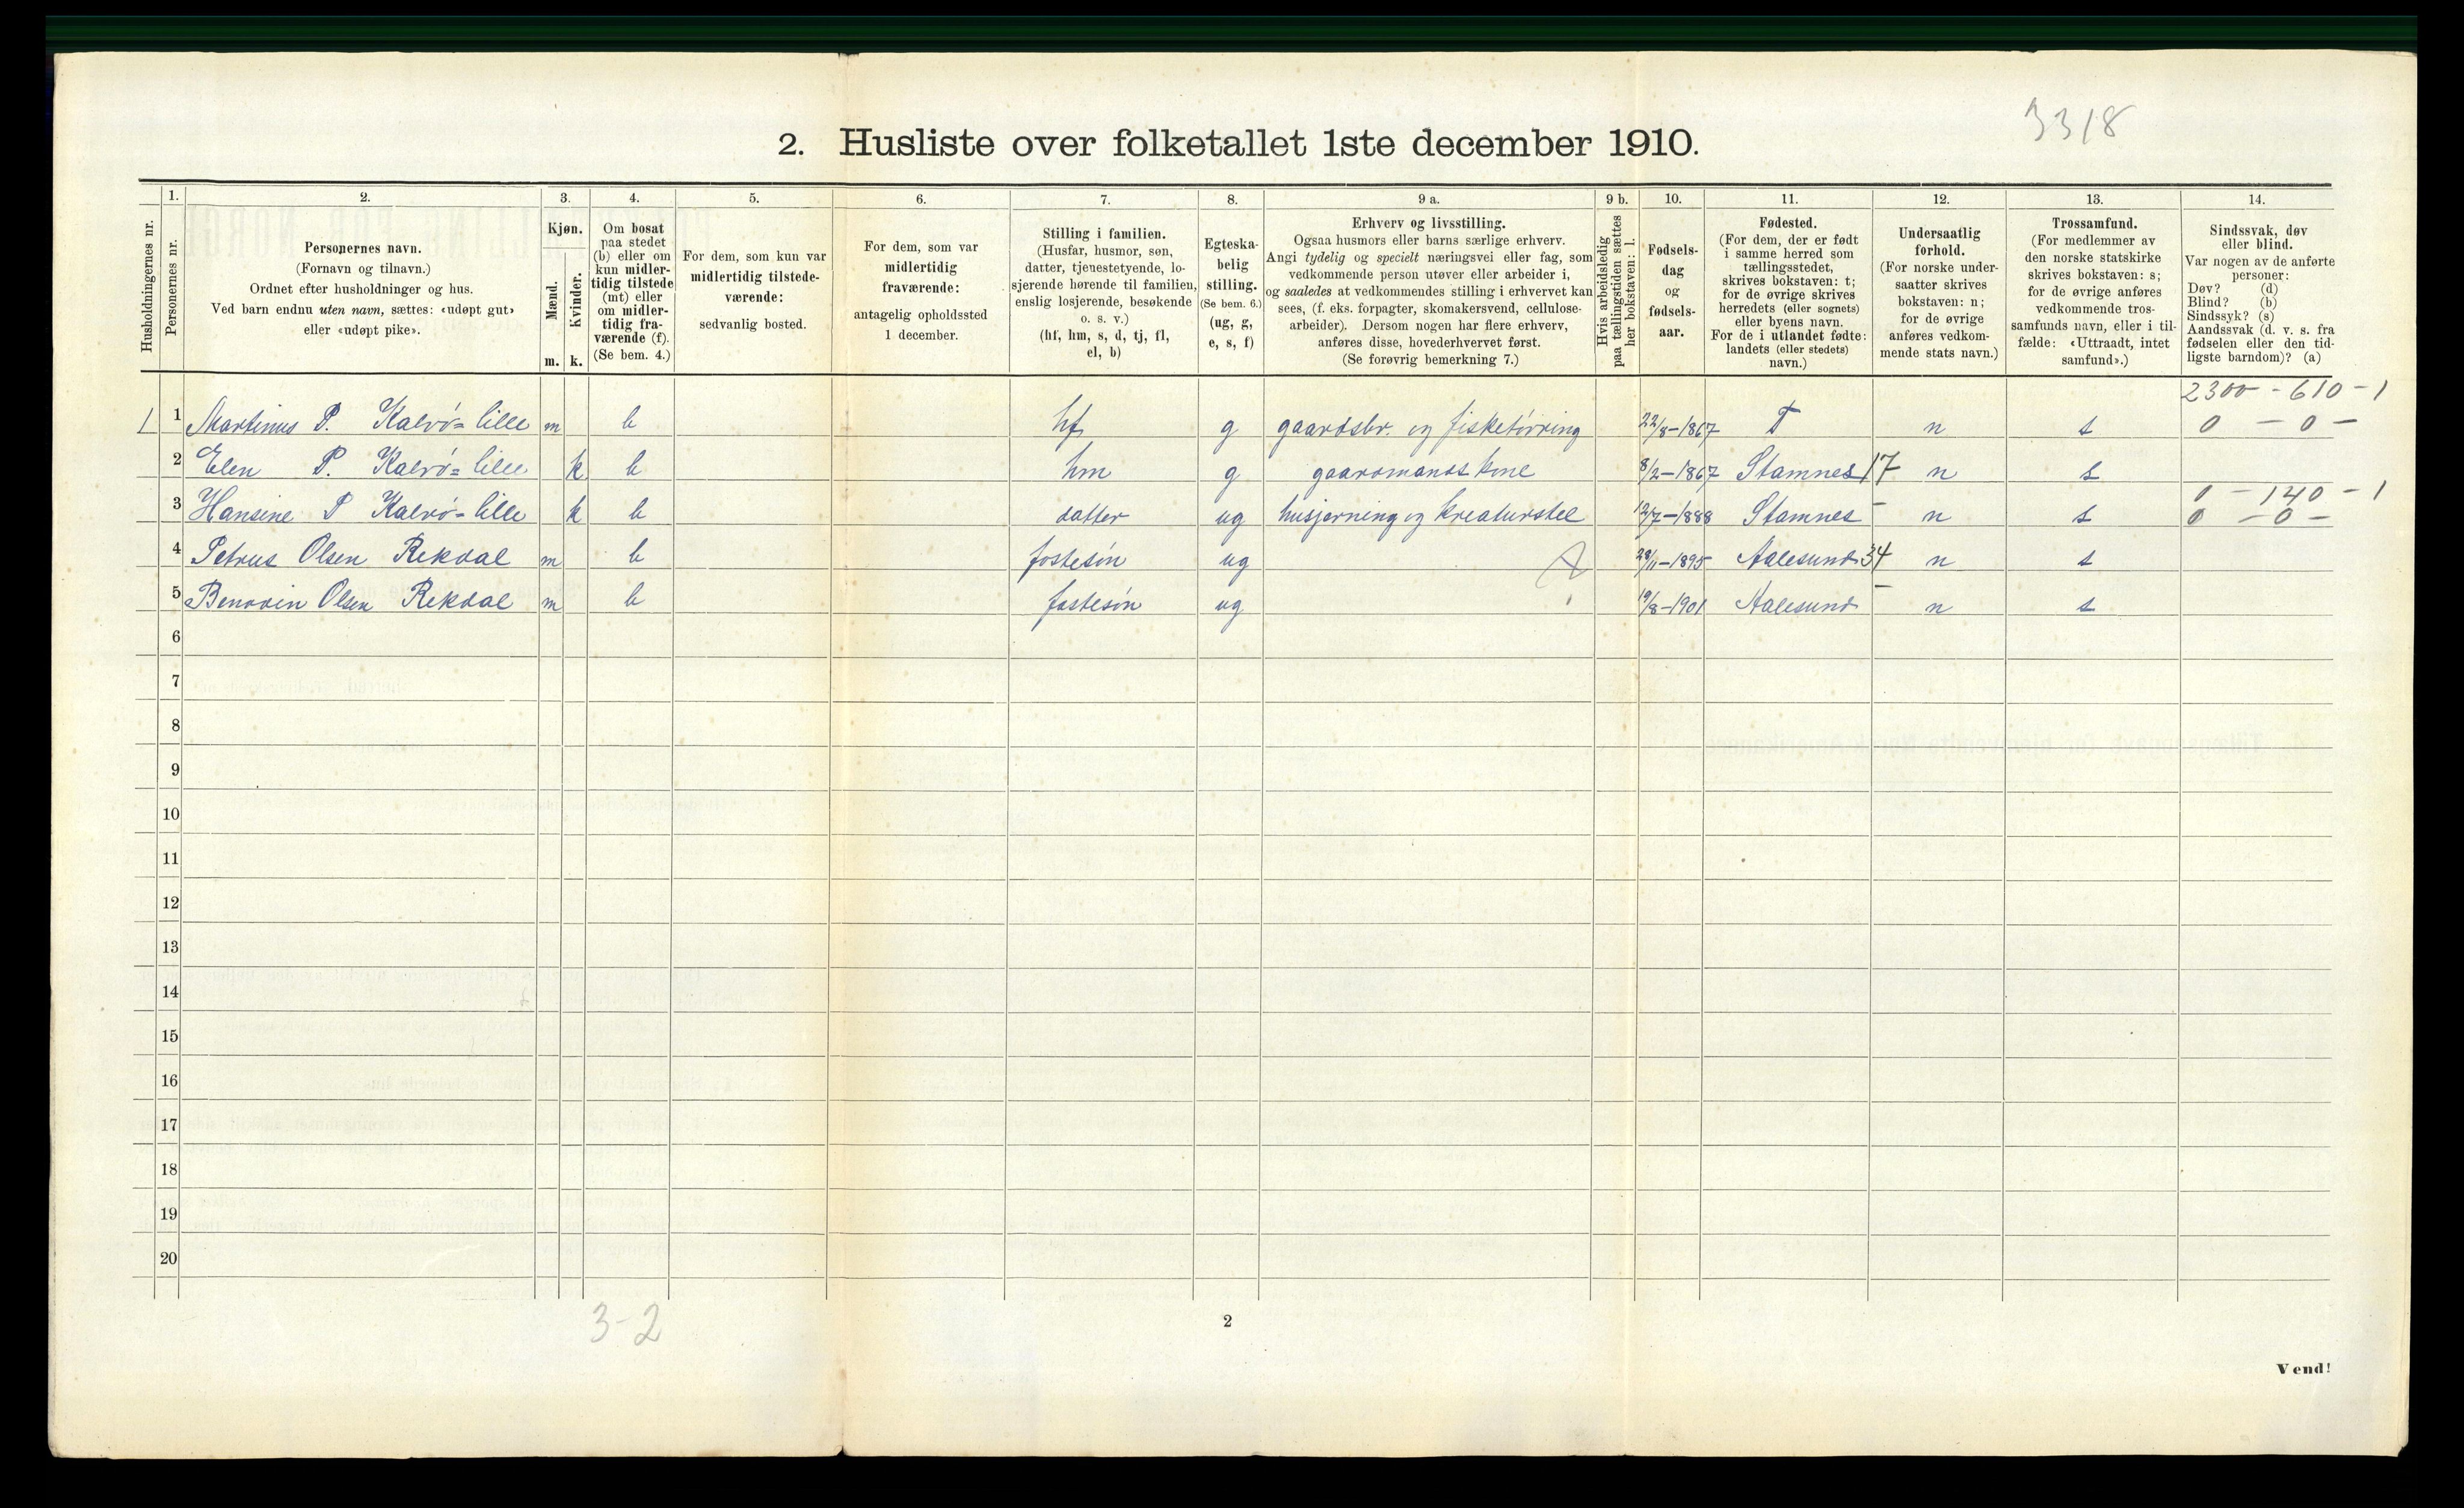 3318
2. Husliste over folketallet 1ste december 1910.
Husholdningernes nr.
1.
Personernes nr.
2.
Personernes navn.
(Fornavn og tilnavn.)
Ordnet efter husholdninger og hus.
Ved barn endnu uten navn, sættes: «udøpt gut»
eller «udøpt pike».
3.
Kjøn.
Mænd.
Kvinder.
m. k.
4.
Om bosat
paa stedet
(b) eller om
kun midler-
tidig tilstede
(mt) eller
om midler-
tidig fra-
værende (f).
(Se bem. 4.)
5.
For dem, som kun var
midlertidig tilstede-
værende:
sedvanlig bosted.
6.
For dem, som var
midlertidig
fraværende:
antagelig opholdssted
1 december.
7.
Stilling i familien.
(Husfar, husmor, søn,
datter, tjenestetyende, lo-
sjerende hørende til familien,
enslig losjerende, besøkende
o. s. v.)
(hf, hm, s, d, tj, fl,
el, b)
8.
Egteska-
belig
stilling.
(Se bem. 6.)
(ug, g,
e, s, f)
9 a.
Erhverv og livsstilling.
Ogsaa husmors eller barns særlige erhverv.
Angi tydelig og specielt næringsvei eller fag, som
vedkommende person utøver eller arbeider i,
og saaledes at vedkommendes stilling i erhvervet kan
sees, (f. eks. forpagter, skomakersvend, cellulose-
arbeider). Dersom nogen har flere erhverv,
anføres disse, hovederhvervet først.
(Se forøvrig bemerkning 7.)
9 b.
Hvis arbeidsledig
paa tællingstiden sættes
her bokstaven: l.
10.
Fødsels-
dag
og
fødsels-
aar.
11.
Fødested.
(For dem, der er født
i samme herred som
tællingsstedet,
skrives bokstaven: t;
for de øvrige skrives
herredets (eller sognets)
eller byens navn.
For de i utlandet fødte:
landets (eller stedets)
navn.)
12.
Undersaatlig
forhold.
(For norske under-
saatter skrives
bokstaven: n;
for de øvrige
anføres vedkom-
mende stats navn.)
13.
Trossamfund.
(For medlemmer av
den norske statskirke
skrives bokstaven: s;
for de øvrige anføres
vedkommende tros-
samfunds navn, eller i til-
fælde: «Uttraadt, intet
samfund».)
14.
Sindssvak, døv
eller blind.
Var nogen av de anførte
personer:
Døv? (d)
Blind? (b)
Sindssyk? (s)
Aandssvak (d. v. s. fra
fødselen eller den tid-
ligste barndom)? (a)
2300 - 610 - 1
1 1 Martinus P. Kalvö=lille m b hf g gaardsbr. og fisketörring 22/8-1867 T n s 0 - 0 -
2 Elen P. Kalvö=lille k b hm g gaardmands kone 8/2-1867 Stamnes 17 n s
0 - 140 - 1
3 Hansine P Kalvö=lille k b datter ug husjerning og kreaturstel 12/7-1888 Stamnes - n s 0 - 0 -
4 Petrus Olsen Rekdal m b fostesön ug 28/11-1895 Aalesund 34 n s
5 Benovin Olsen Rekdal m b fostesön ug 19/8-1901 Aalesund - n s
6
7
8
9
10
11
12
13
14
15
16
17
18
19
20
3-2
2
Vend!